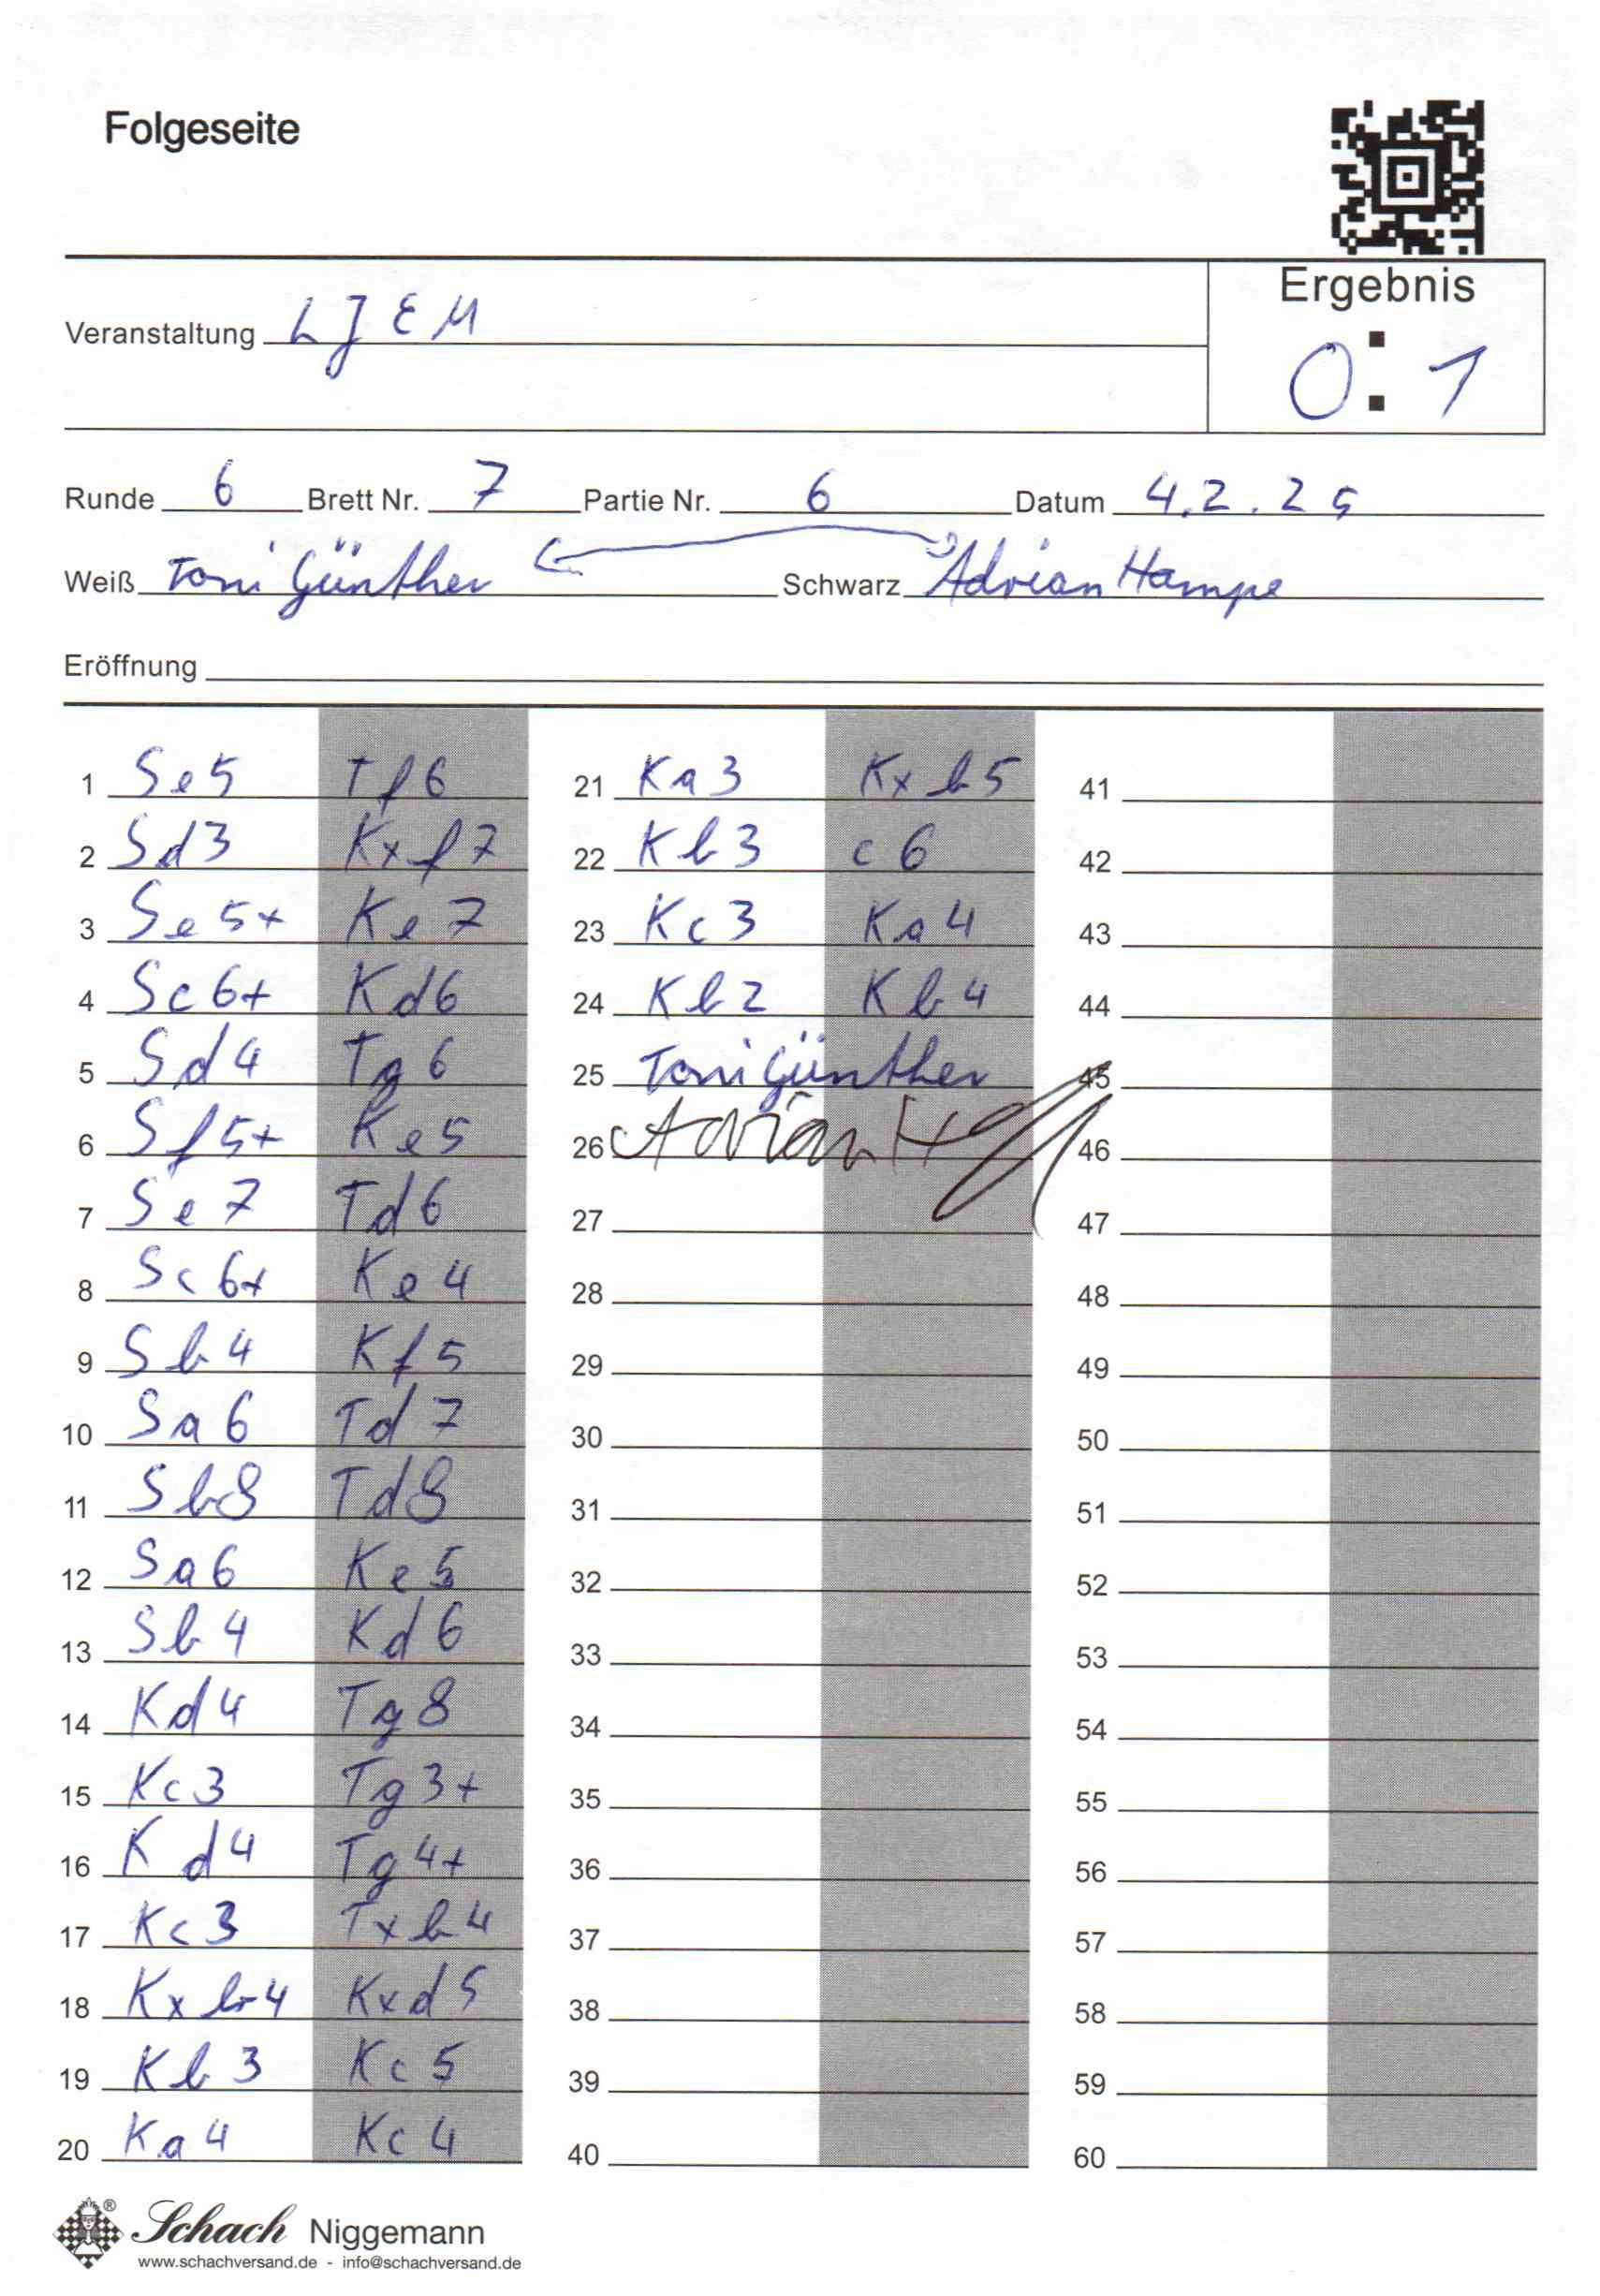 Folgeseite
Ergebnis
Veranstaltung LJEM
0:1
Runde 6 Brett Nr. 7 Partie Nr. 6 Datum 4.2.25
Weiß Toni Günther Schwarz Adrian Hampe
Eröffnung
1 Se5 Tf6 21 Ka3 Kxb5 41
2 Sd3 Kxf7 22 Kb3 c6 42
3 Se5+ Ke7 23 Kc3 Ka4 43
4 Sc6+ Kd6 24 Kb2 Kb4 44
5 Sd4 Tg6 25 Toni Günther 45
6 Sf5+ Ke5 26 Adrian 46
7 Se7 Td6 27 47
8 Sc6+ Ke4 28 48
9 Sb4 Kf5 29 49
10 Sa6 Td7 30 50
11 Sb8 Td8 31 51
12 Sa6 Ke5 32 52
13 Sb4 Kd6 33 53
14 Kd4 Tg8 34 54
15 Kc3 Tg3+ 35 55
16 Kd4 Tg4+ 36 56
17 Kc3 Txb4 37 57
18 Kxb4 Kxd5 38 58
19 Kb3 Kc5 39 59
20 Ka4 Kc4 40 60
® Schach Niggemann
www.schachversand.de - info@schachversand.de